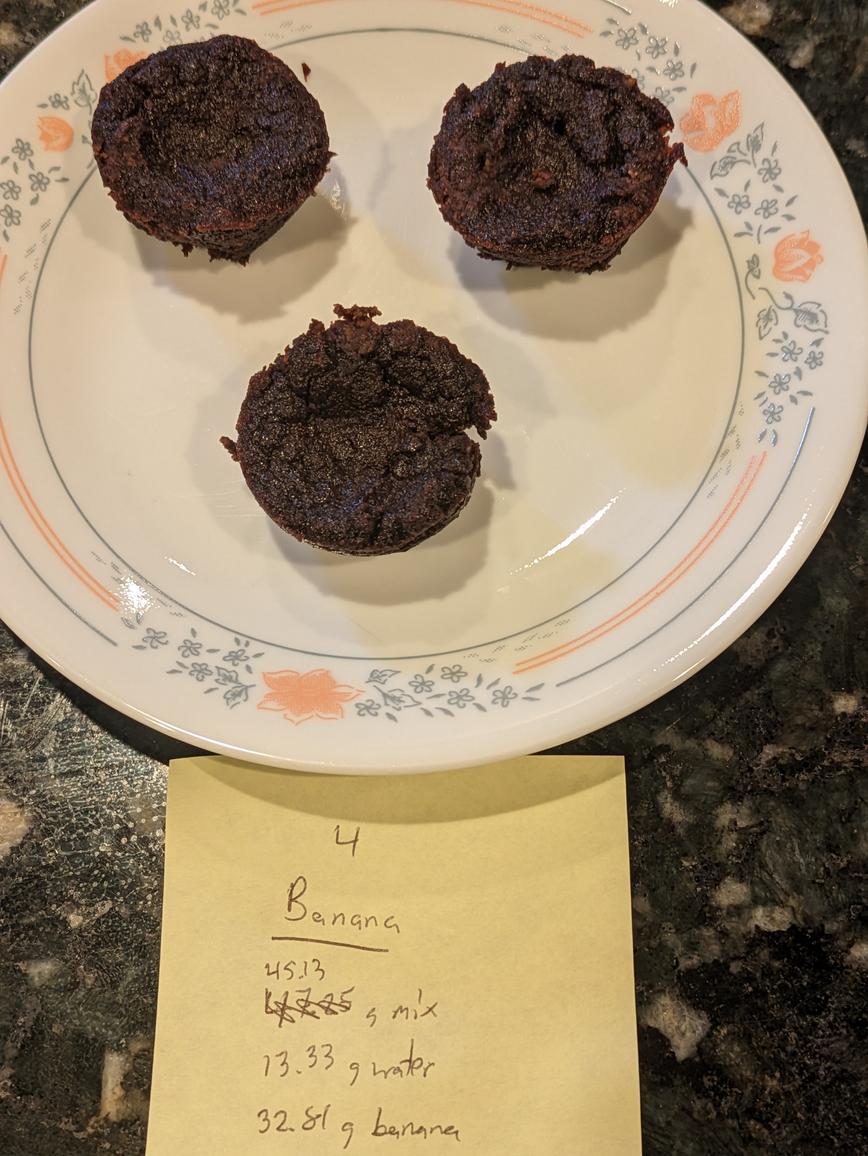 4
Banana
45.13
g mix
13.33 g water
32.81 g banana